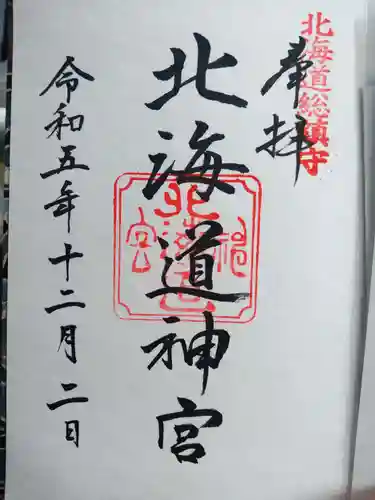 北海道総鎮守
奉拝
北海道神宮
北海道神宮
令和五年十二月二日